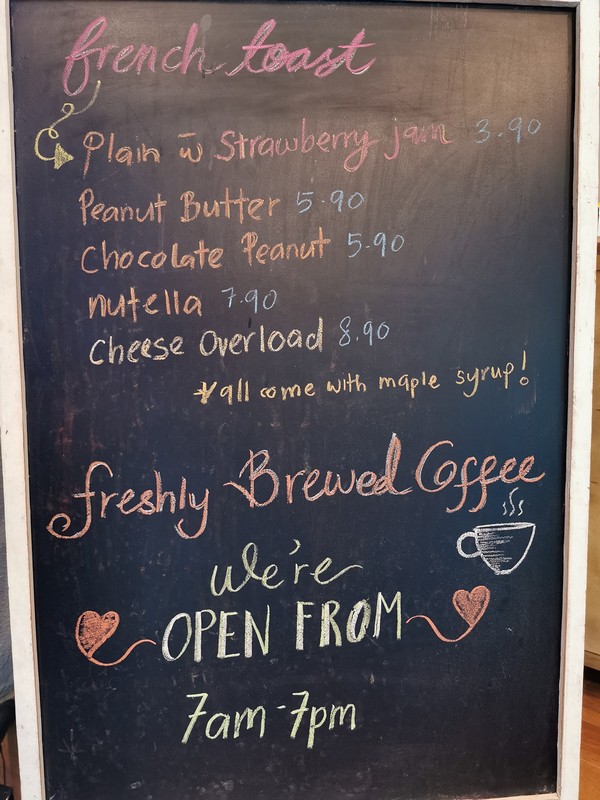 french toast
Plain w̄ Strawberry jam 3.90
Peanut Butter 5.90
Chocolate Peanut 5.90
nutella 7.90
Cheese Overload 8.90
*all come with maple syrup!
freshly Brewed Coffee
We're
OPEN FROM
7am-7pm